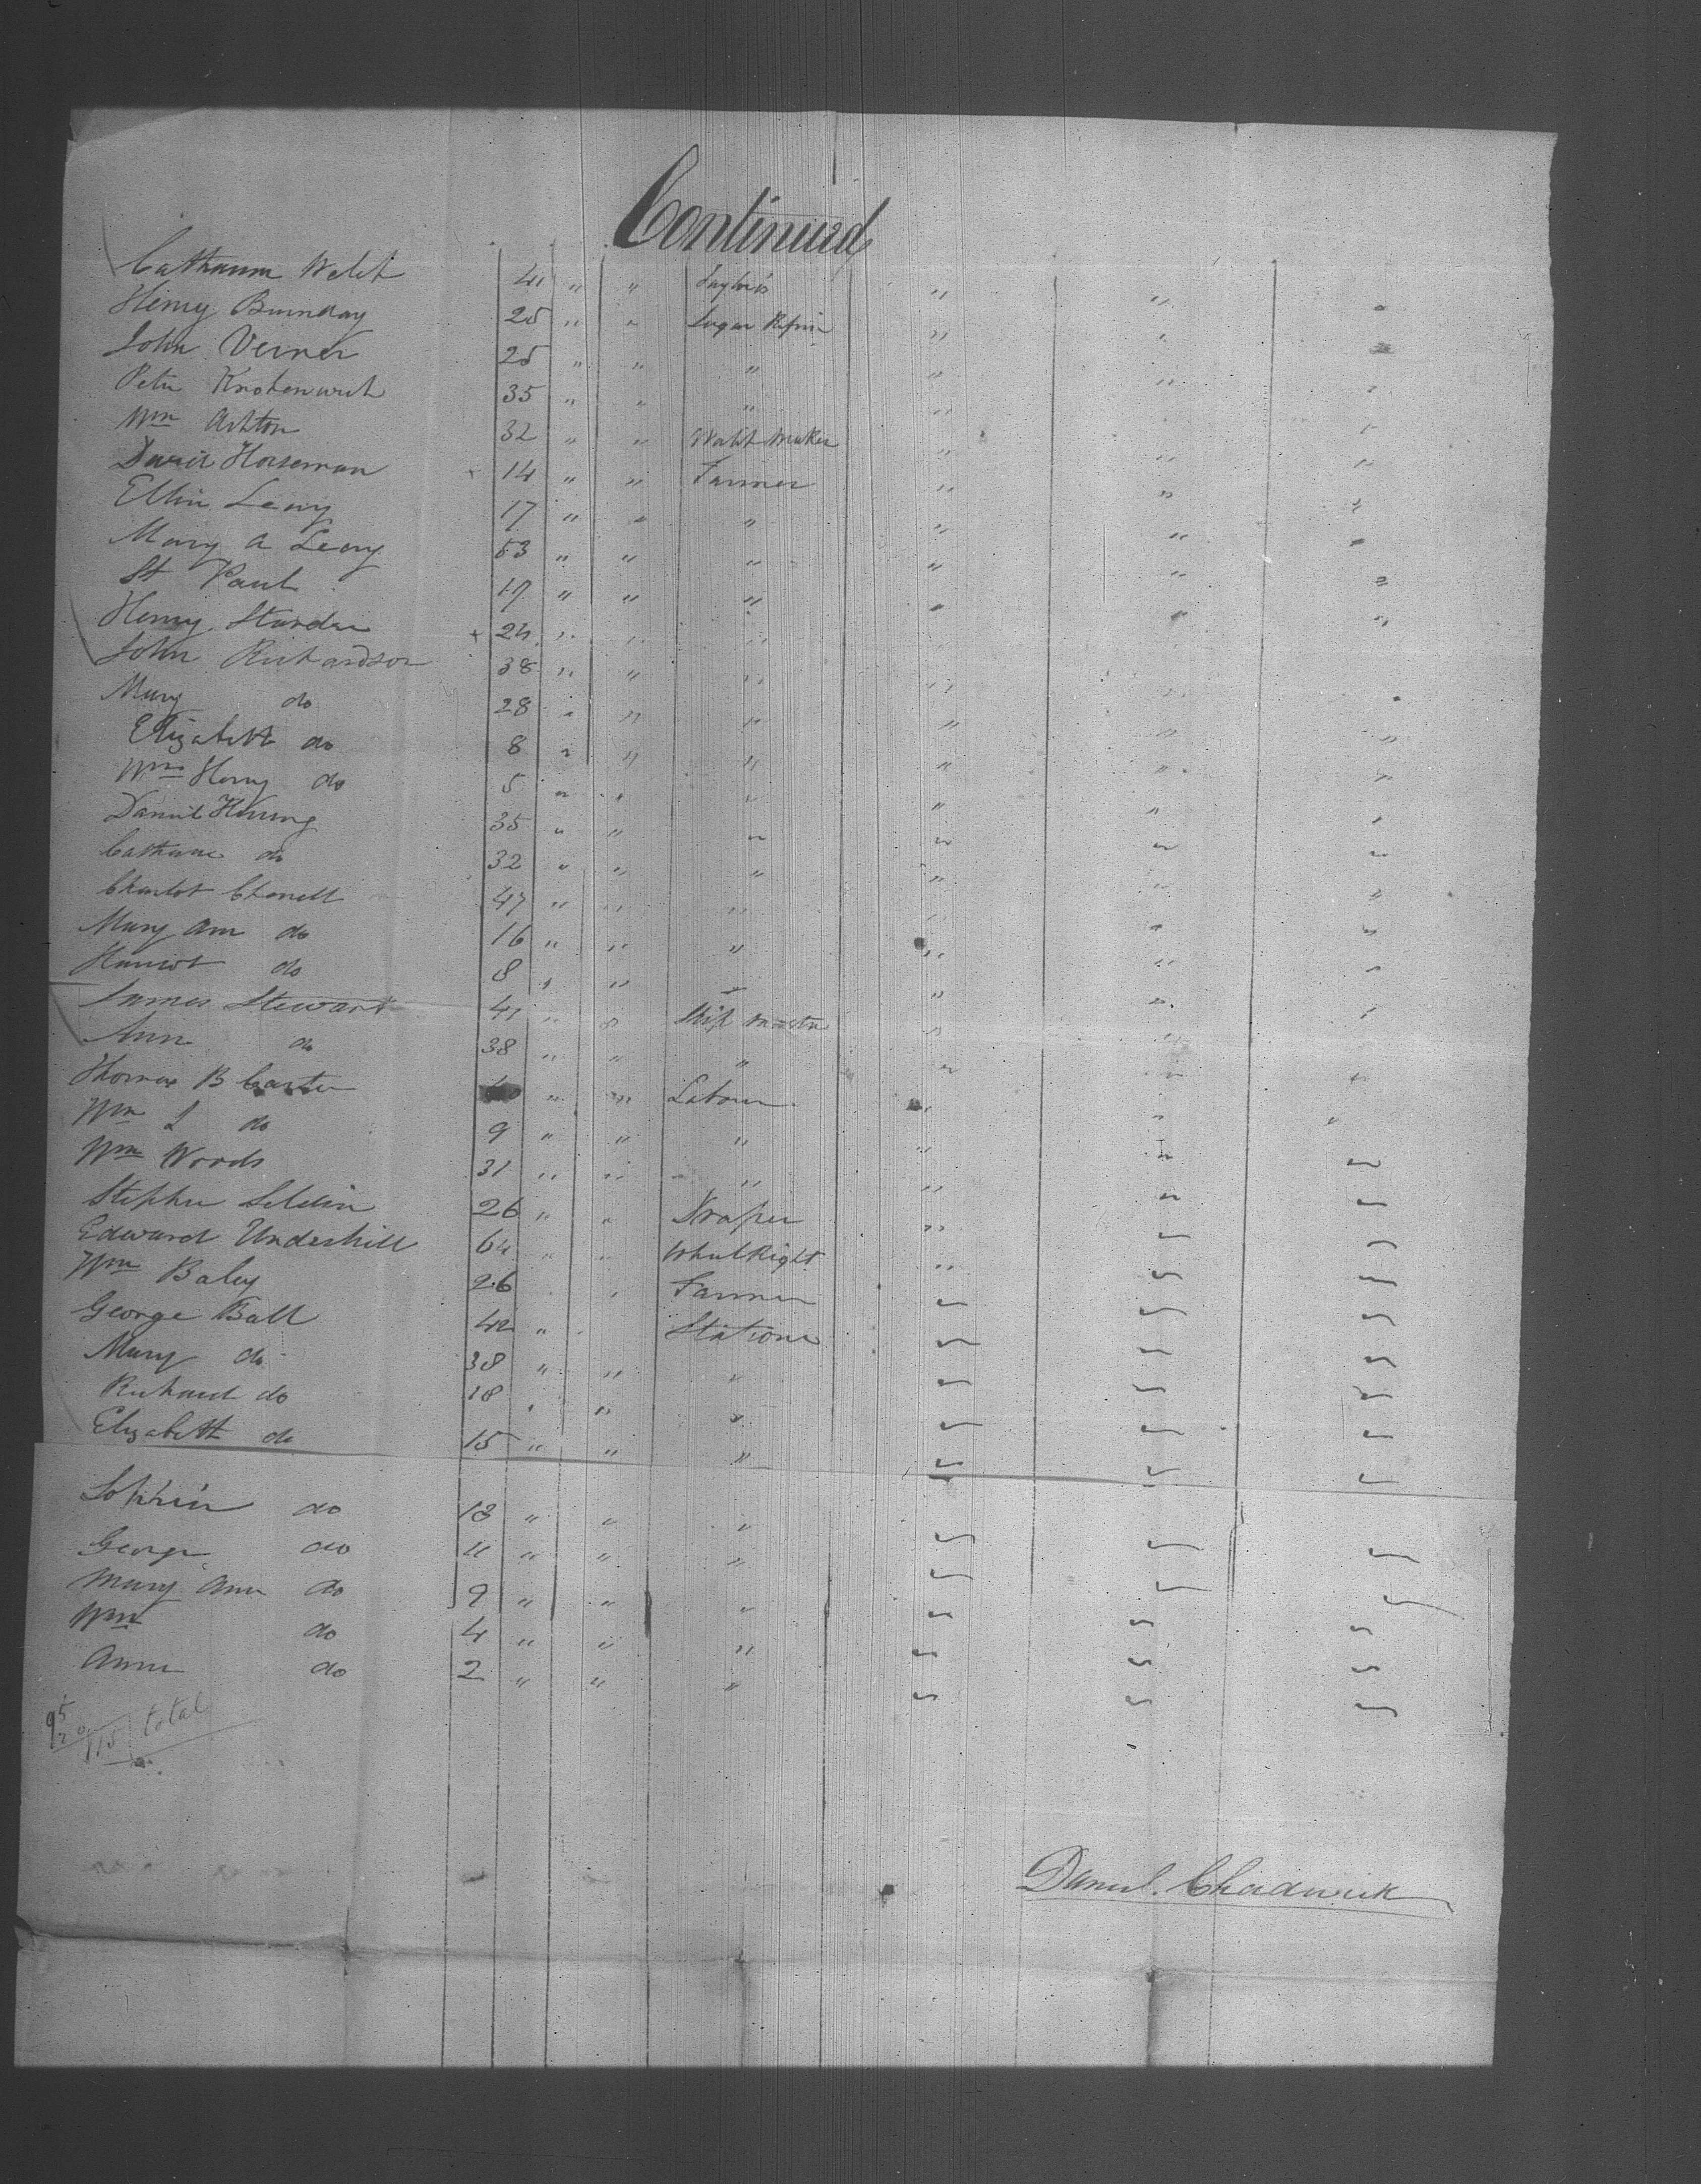 Continued
Catharine Welch 41 " " Taylor's " " "
Henry Burnday 25 " " Sugar Refiner " " "
John Verner 25 " " " " " "
Peter " 35 " " " " " "
Wm Ashton 32 " " Watch Maker " " "
David Horseman 14 " " Farmer " " "
Ellin Leary 17 " " " " " "
Mary A Leary 53 " " " " " "
St Paul 17 " " " " " "
Henry 24 " " " " " "
John Richardson 38 " " " " " "
Mary do 28 " " " " " "
Elizabeth do 8 " " " " " "
Wm Henry do 5 " " " " " "
Daniel 35 " " " " " "
Catharine do 32 " " " " " "
Charlot 47 " " " " " "
Mary Ann do 16 " " " " " "
Harriot do 8 " " " " " "
James Stewart 41 " " Ship Master " " "
Ann do 38 " " " " " "
Thomas B Carter " " Labour " " "
Wm L do 9 " " " " " "
Wm Woods 31 " " " " " "
Stephen 26 " " Draper " " "
Edward Underhill 64 " " WhulRight " " "
Wm Baley 26 " " Farmer " " "
George Ball 42 " " Stationer " " "
Mary do 38 " " " " " "
Richard do 18 " " " " " "
Elizabeth do 15 " " " " " "
Sophia do 13 " " " " " "
George do 11 " " " " " "
Mary Ann do 9 " " " " " "
Wm do 4 " " " " " "
Anne do 2 " " " " " "
95
20
115 total
Daniel Chadwick